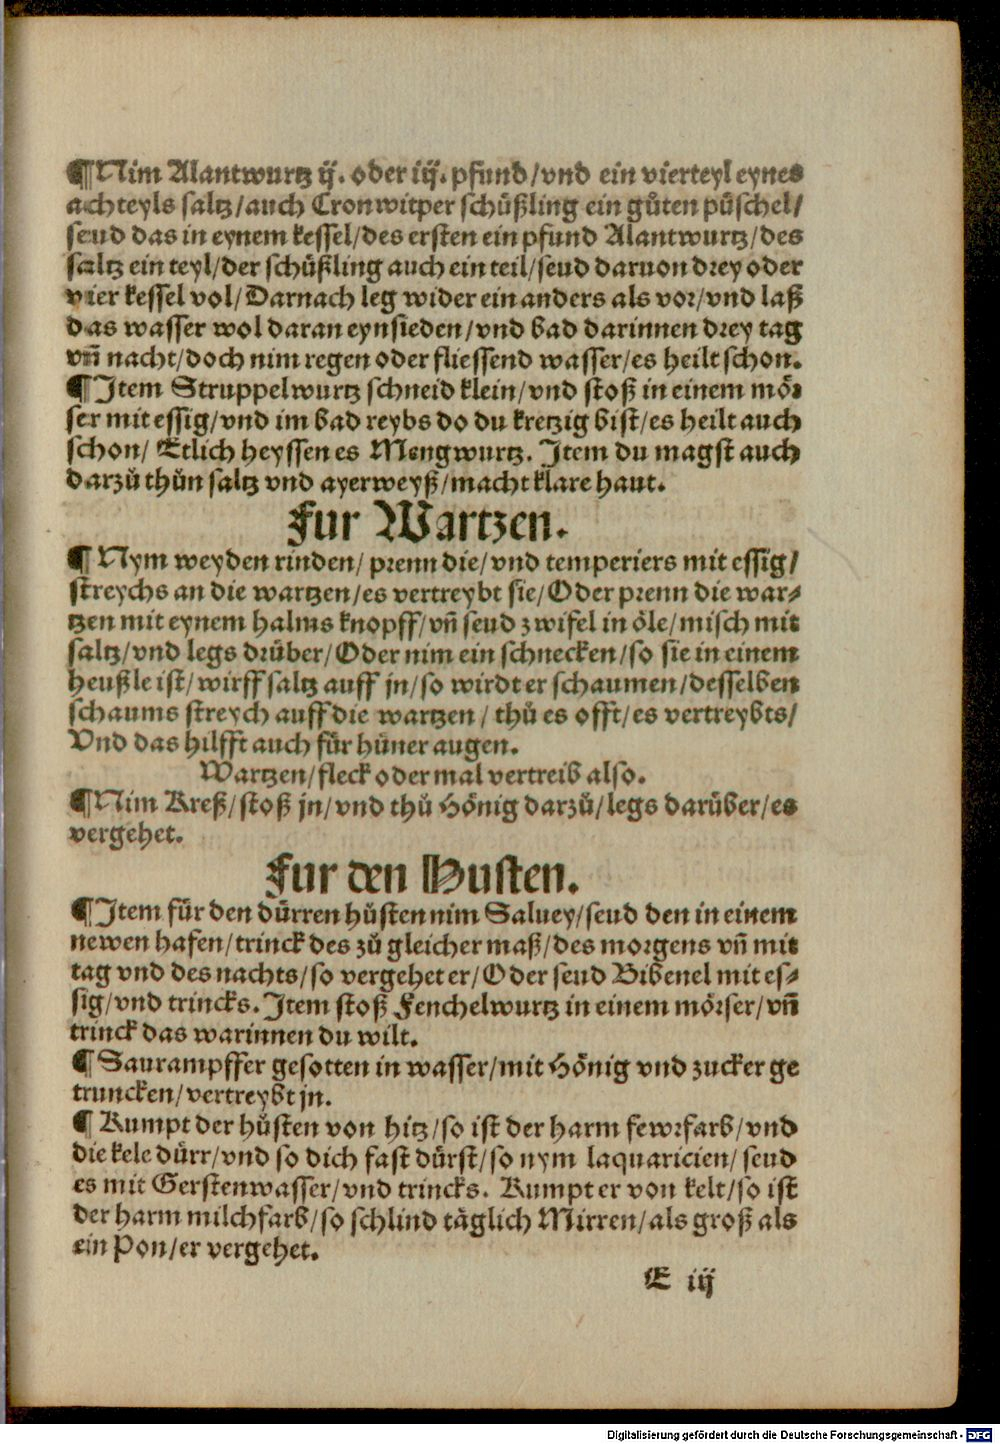 ¶Nim Alantwurtz ij. oder iij. pfund/vnd ein vierteyl eynes
achteyls saltz/auch Cronwitper schüßling ein gůten püschel/
seud das in eynem kessel/des ersten ein pfund Alantwurtz/des
saltz ein teyl/der schüßling auch ein teil/seud daruon drey oder
vier kessel vol/Darnach leg wider ein anders als vor/vnd laß
das wasser wol daran eynsieden/vnd bad darinnen drey tag
vn̄ nacht/doch nim regen oder fliessend wasser/es heilt schon.
¶Item Struppelwurtz schneid klein/vnd stoß in einem mör⸗
ser mit essig/vnd im bad reybs do du kretzig bist/es heilt auch
schon/ Etlich heyssen es Mengwurtz. Item du magst auch
darzů thůn saltz vnd ayerweyß/macht klare haut.
Fur Wartzen.
¶ Nym weyden rinden/ prenn die/vnd temperiers mit essig/
streychs an die wartzen/es vertreybt sie/Oder prenn die war⸗
tzen mit eynem halms knopff/vn̄ seud zwifel in öle/misch mit
saltz/vnd legs drüber/Oder nim ein schnecken/so sie in einem
heußle ist/wirff saltz auff jn/so wirdt er schaumen/desselben
schaums streych auff die wartzen/thů es offt/es vertreybts/
Vnd das hilfft auch für hüner augen.
Wartzen/fleck oder mal vertreib also.
¶Nim Kreß/stoß jn/vnd thů Hönig darzů/legs darüber/es
vergehet.
Fur den Husten.
¶Item für den dürren hůsten nim Saluey/seud den in einem
newen hafen/trinck des zů gleicher maß/des morgens vn̄ mit
tag vnd des nachts/so vergehet er/Oder seud Bibenel mit es⸗
sig/vnd trincks. Item stoß Fenchelwurtz in einem mörser/vn̄
trinck das warinnen du wilt.
¶ Saurampffer gesotten in wasser/mit Hönig vnd zucker ge
truncken/vertreybt jn.
¶ Kumpt der hůsten von hitz/so ist der harm fewrfarb/vnd
die kele dürr/vnd so dich fast dürst/so nym laquaricien/ seud
es mit Gerstenwasser/vnd trincks. Kumpt er von kelt/so ist
der harm milchfarb/so schlind täglich Mirren/als groß als
ein Pon/er vergehet.
E iij
Digitalisierung gefördert durch die Deutsche Forschungsgemeinschaft - DFG